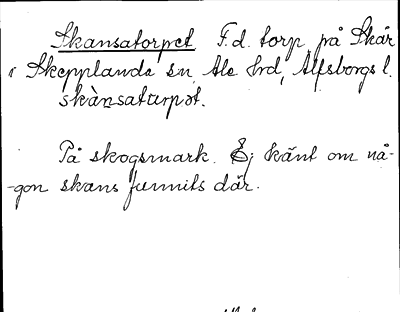 Skansatorpet F.d. torp på Skår
i Skepplanda sn, Ale hrd, Älfsborgs l.
skànsatarpət.
På skogsmark. Ej känt om nå-
-gon skans funnits där.